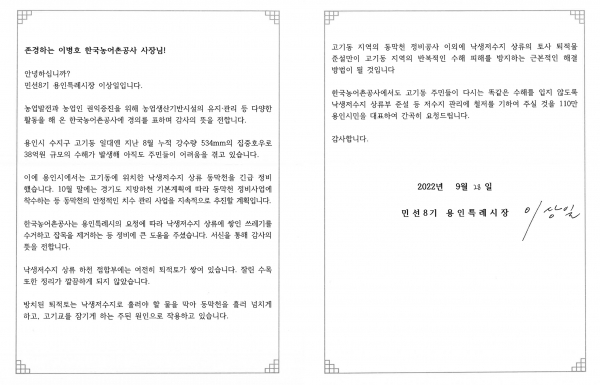 존경하는 이병호 한국농어촌공사 사장님!
안녕하십니까?
민선8기 용인특례시장 이상일입니다.
농업발전과 농업인 권익증진을 위해 농업생산기반시설의 유지·관리 등 다양한
활동을 해 온 한국농어촌공사에 경의를 표하며 감사의 뜻을 전합니다.
용인시 수지구 고기동 일대엔 지난 8월 누적 강수량 534mm의 집중호우로
38억원 규모의 수해가 발생해 아직도 주민들이 어려움을 겪고 있습니다.
이에 용인시에서는 고기동에 위치한 낙생저수지 상류 동막천을 긴급 정비
했습니다. 10월 말에는 경기도 지방하천 기본계획에 따라 동막천 정비사업에
착수하는 등 동막천의 안정적인 치수 관리 사업을 지속적으로 추진할 계획입니다.
한국농어촌공사는 용인특례시의 요청에 따라 낙생저수지에 쌓인 쓰레기를
수거하고 잡목을 제거하는 등 정비에 큰 도움을 주셨습니다. 서신을 통해 감사의
뜻을 전합니다.
낙생저수지 상류 하천 접합부에는 여전히 퇴적토가 쌓여 있습니다. 잘린 수목
또한 정리가 깔끔하게 되지 않았습니다.
방치된 퇴적토는 낙생저수지로 흘러야 할 물을 막아 동막천을 흘러 넘치게
하고, 고기교를 잠기게 하는 주된 원인으로 작용하고 있습니다.
고기동 지역의 동막천 정비공사 이외에 낙생저수지 상류의 토사 퇴적물
준설만이 고기동 지역의 반복적인 수해 피해를 방지하는 근본적인 해결
방법이 될 것입니다
한국농어촌공사에서도 고기동 주민들이 다시는 똑같은 수해를 입지 않도록
낙생저수지 상류부 준설 등 저수지 관리에 철저를 기하여 주실 것을 110만
용인시민을 대표하여 간곡히 요청드립니다.
감사합니다.
2022년 9월 일
민선8기 용인특례시장 이상일